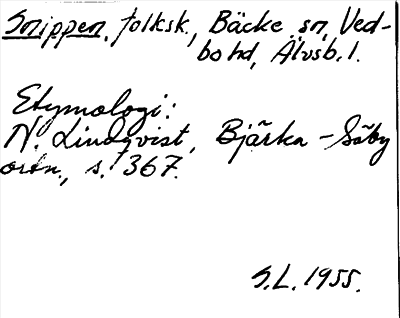 Snippen, folksk., Bäcke sn, Ved-
bo hd, Älvsb. l.
Etymologi:
N. Lindqvist, Bjärka-Säby
ortn., s. 367.
S.L. 1955.